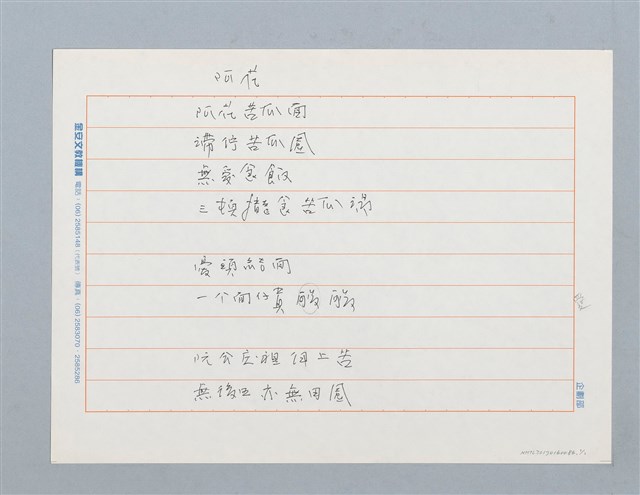 阿花
阿花苦瓜面
滯佇苦瓜園
無愛食飯
三頓攏食苦瓜湯
憂頭結面
一个面仔黃酸酸
阮公在祖伊上苦
無後亦無田園
金安文教機構 電話:(06) 2585148 (代表號) 傳真:(06) 2583070・2585286
企劃部